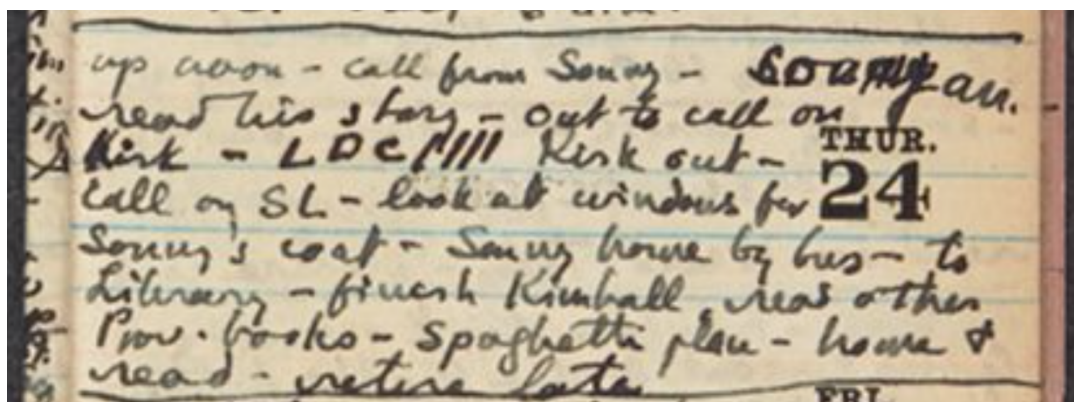 up noon - call from Sonny - Sonny arr.
read his story - out to call on
THUR.
Kirk - LDC //// Kirk out -
24
call on SL - look at windows for
Sonny's coat - Sonny home by bus - to
Library - finish Kimball, read other
Prov. books - Spaghetti place - home &
read - retire late
FRI.